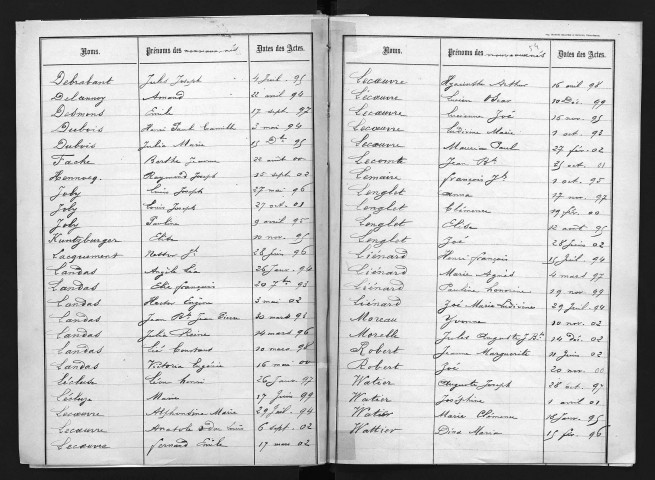 Noms. Prénoms des nouveaux-nés Dates des Actes.
Debrabant Jules Joseph 4 Juil. 95
Delannoy Amand 22 avril 94
Desmons Emile 17 sept 97
Dubois Henri Paul Camille 2 mai 94
Dubois Julia Marie 15 Dbre 95
Fache Berthe Jeanne 22 août 00
Hennocq Raymond Joseph 25 sept 02
Joly Louis Joseph 27 mai 96
Joly Louis Joseph 27 oct 01
Joly Pauline 9 avril 95
Kuntzburger Elise 10 nov. 95
Lacquement Nestor Jh 28 juin 96
Landas Angèle Léa 26 Janv. 94
Landas Elie françois 20 7bre 93
Landas Hector Eugène 3 mai 02
Landas Jean Bte Jean Pierre 10 mars 96
Landas Julia Reine 14 mars 96
Landas Léé Constant 10 mars 98
Landas Victoria Eugénie 16 mai 00
Lécluse Léon henri 26 Janv. 97
Lécluse Marie 17 juin 99
Lecoeuvre Alphonsine Marie 29 Juil. 94
Lecoeuvre Anatole Louis 6 sept. 02
Lecoeuvre fernand Emile 17 mars 02
Noms. Prénoms des nouveaux-nés Dates des Actes.
Lecoeuvre Hyacinthe Arthur 16 avril 98
Lecoeuvre Lucien 10 Déc. 99
Lecoeuvre Lucienne Zoé 16 nov. 95
Lecoeuvre Ludivine Marie 1 oct. 93
Lecoeuvre Maurice Paul 27 fév. 02
Lecomte Jean Bte 25 oct. 01
Lemaire françois Jh 1 oct. 95
Longlet anna 17 nov. 97
Longlet Clémence 19 fév. 00
Longlet Elise 12 août 95
Longlet Zoé 28 Juin 02
Liénard Henri françois 15 Juil. 94
Liénard Marie Agnès 4 mars 97
Liénard Pauline Honorine 29 nov. 99
Liénard Zoé Marie Ludivine 29 Juil. 94
Moreau Yvonne 10 nov. 02
Morelle Jules Auguste J Bte 14 déc. 02
Robert Jeanne Marguerite 11 Juin 02
Robert Zoé 20 nov. 00
Watier Auguste Joseph 28 oct. 97
Watier Joséphine 1 avril 01
Watier Marie Clémence 16 Janv. 95
Wattier Dina Maria 15 fév. 96